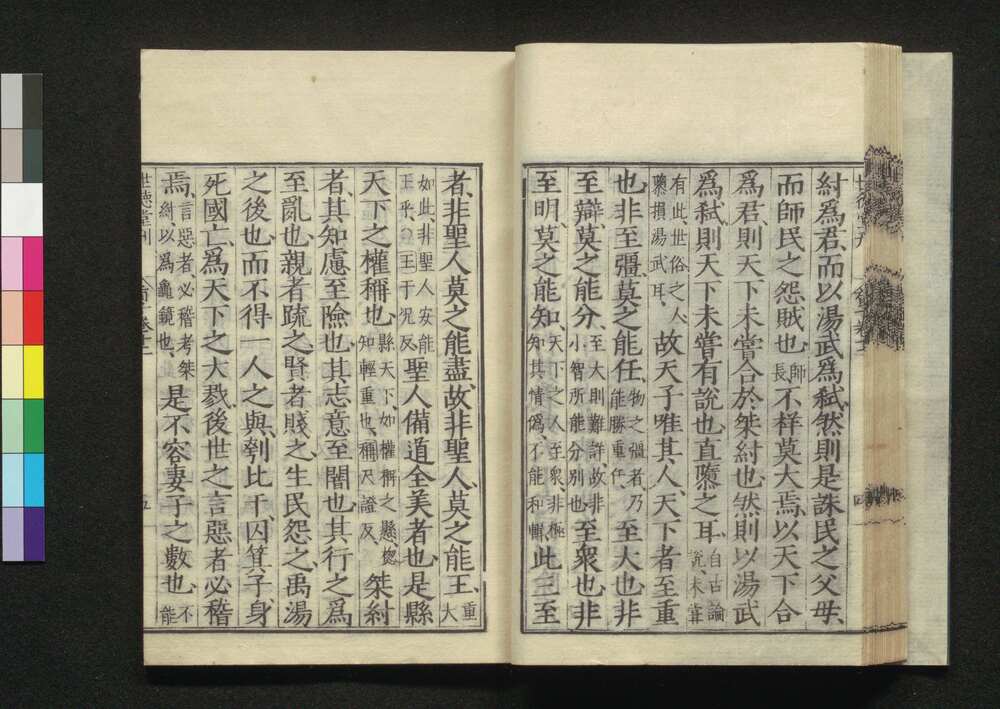 紂爲君、而以湯武爲弒然則是誅民之父母、
而師民之怨賊也、師長不祥莫大焉、以天下合
爲君、則天下未嘗合於桀紂也、然則以湯武
爲弒、則天下未嘗有說也、直隳之耳、自古論說、未嘗
有此、世俗之人隳損湯武耳、故天子唯其人、天下者至重
也、非至彊莫之能任、物之彊者乃能勝重任、至大也非
至辯、莫之能分、至大則難詳、故非小智所能分別也、至衆也、非
至明、莫之能知、天下之人至衆、非極知其情僞、不能和輯、此三至
者、非聖人莫之能盡、故非聖人、莫之能王、重大
如此、非聖人安能王乎、○王于況反聖人備道全美者也、是縣
天下之權稱也、縣天下、如權稱之懸、揔知輕重也、稱尺證反、桀紂
者、其知慮至險也、其志意至闇也、其行之爲
至亂也、親者疏之、賢者賤之、生民怨之、禹湯
之後也、而不得一人之與、刳比干、囚箕子、身
死國亡、爲天下之大戮、後世之言惡者必稽
焉、言惡者、必稽考桀紂、以爲龜鏡也、是不容妻子之數也、不能
世德堂刊 五